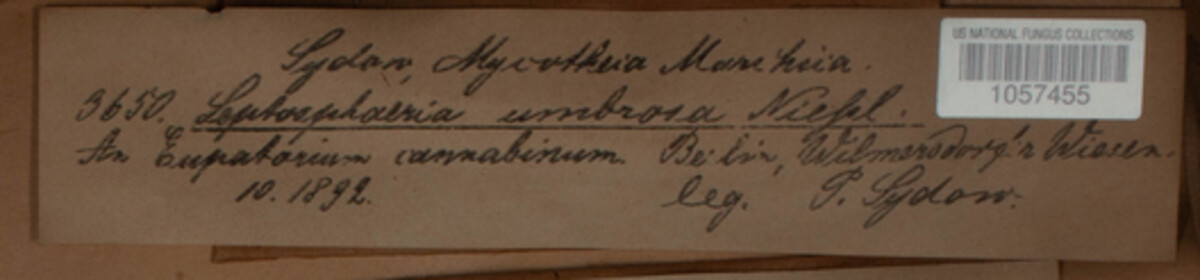 Sydow, Mycotheca Marchica.
US NATIONAL FUNGUS COLLECTIONS
1057455
3650. Leptosphaeria umbrosa Niessl.
An Eupatorium cannabinum. Berlin, Wilmersdorf'r Wiesen.
10. 1892. leg. P. Sydow.